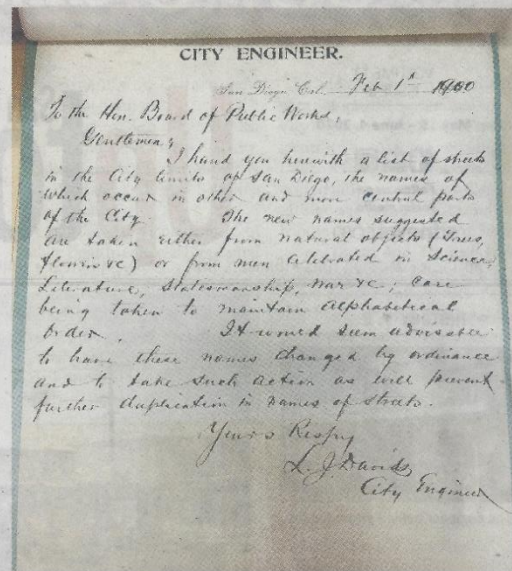 CITY ENGINEER.
San Diego, Cal. Feb 1st 1900
To the Hon. Board of Public Works,
Gentlemen;
I hand you herewith a list of streets
in the City limits of San Diego, the names of
which occur in other and more central parts
of the City. The new names suggested
are taken either from natural objects (Trees,
flowers &c) or from men celebrated in Science,
Literature, Statesmanship, War &c; care
being taken to maintain alphabetical
order. It would seem advisable
to have these names changed by ordinance
and to take such action as will prevent
further duplication in names of streets.
Yours Respy
L. J. Davids
City Engineer